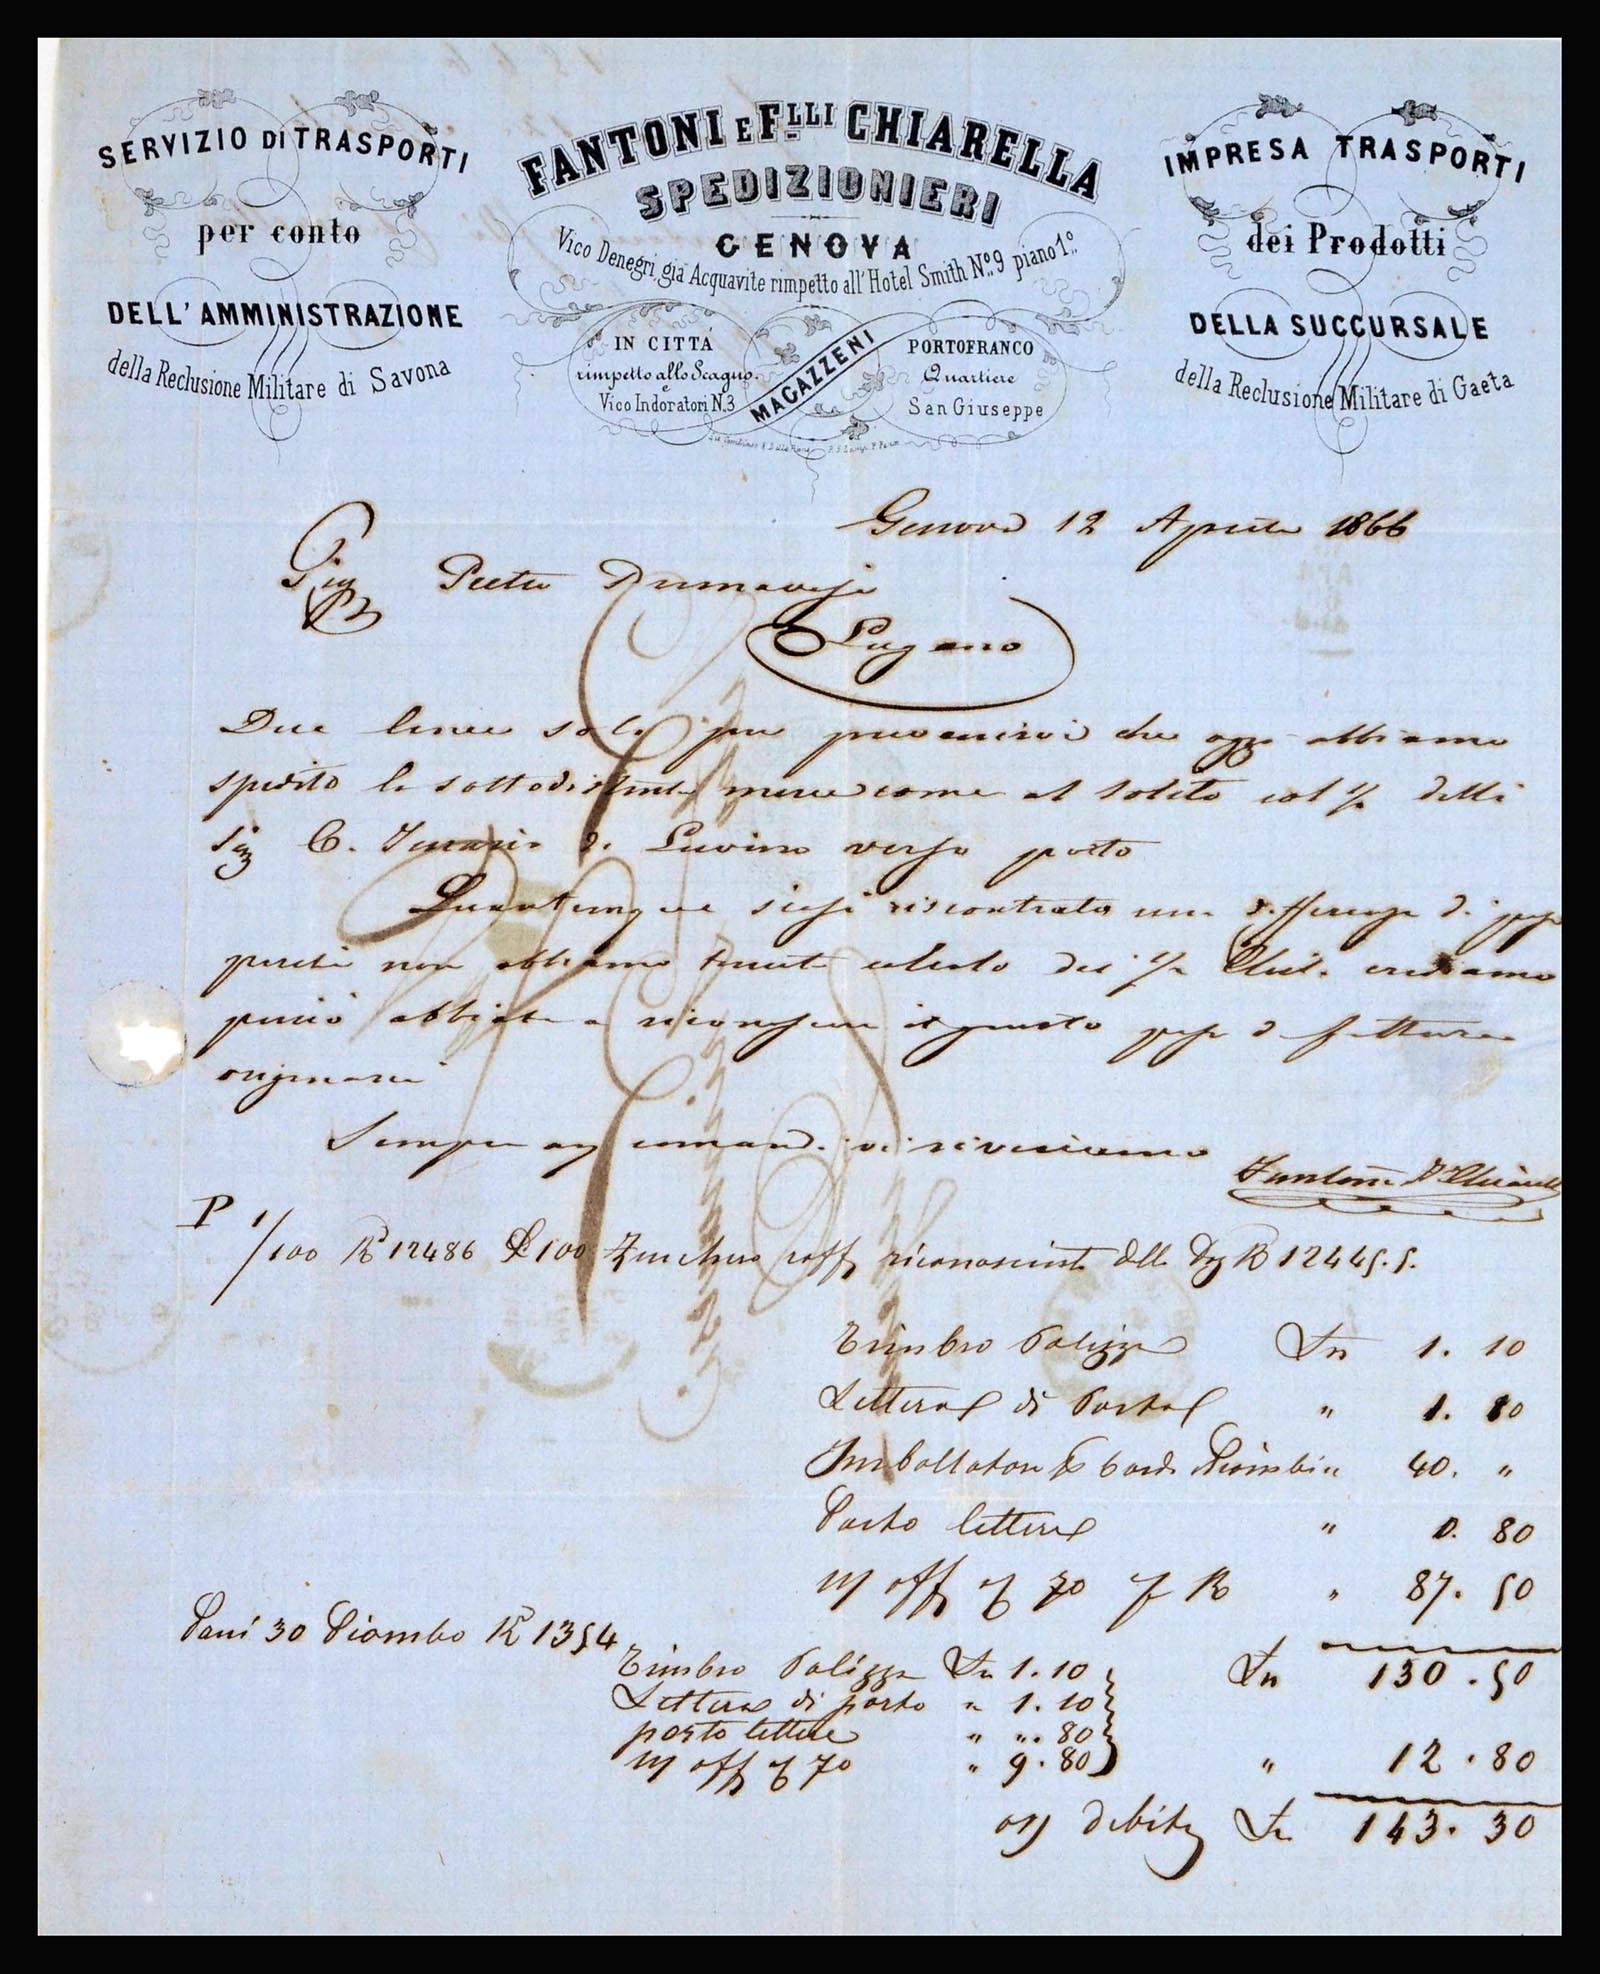 SERVIZIO DI TRASPORTI
per conto
DELL'AMMINISTRAZIONE
della Reclusione Militare di Savona
FANTONI E F.LLI CHIARELLA
SPEDIZIONIERI
GENOVA
Vico Denegri, già Acquavite rimpetto all'Hotel Smith N.º 9 piano 1.º
IN CITTÁ
rimpetto allo Scagno
e
Vico Indoratori N.3
MAGAZZENI
PORTOFRANCO
Quartiere
San Giuseppe
IMPRESA TRASPORTI
dei Prodotti
DELLA SUCCURSALE
della Reclusione Militare di Gaeta
Genova 12 Aprile 1866
Sig Pietro
Lugano
Due linee sole per prevenirvi che oggi abbiamo
spedito le sottodistinte merce come al solito col
Sig C. di Luvino verso porto
Quantunque siasi riscontrata una differenza di
perché non abbiamo crediamo
perciò abbiate a riconoscere il giusto peso di fattura
originaria
Sempre ai comandi vi riveriamo
Fantoni F Chiarella
P 1/100 K 12486 100 Zucchero raff riconosciuto K 12445.5.
Timbro Polizza Ln 1. 10
Lettera di Porto " 1. 10
Imballatore " 40. "
Porto lettere " 0. 80
n/ off 70 K " 87. 50
Pani 30 Piombo K 1354
Ln 130.50
Timbro Polizza Ln 1.10
Lettera di porto " 1.10
porto lettere " ". 80
n/ off 70 " 9.80
" 12.80
debito Ln 143.30